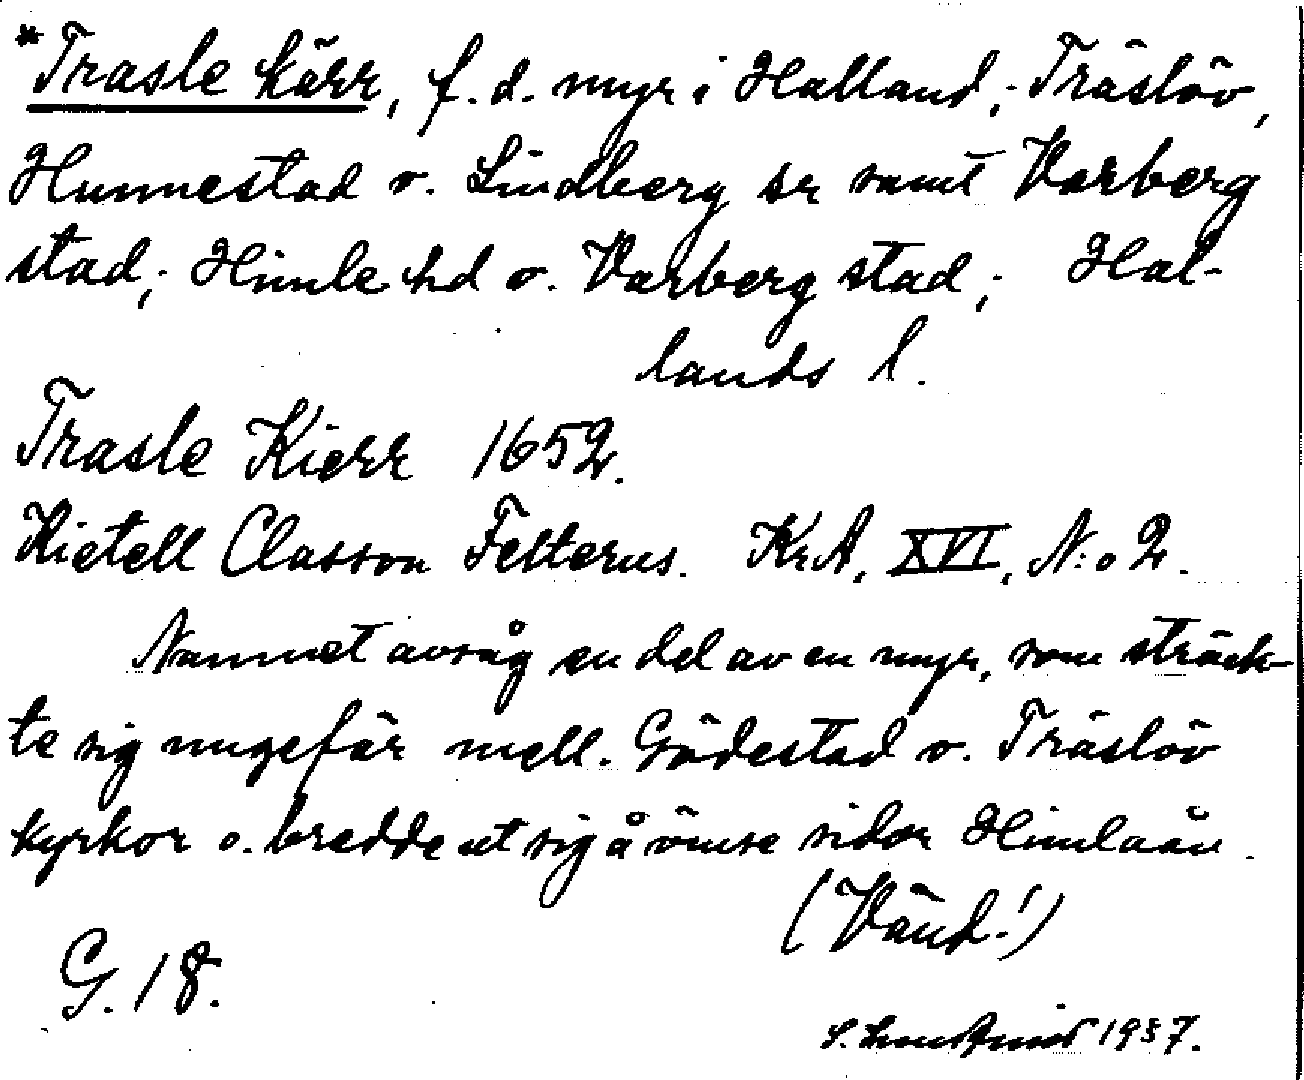 *Trasle kärr, f. d. myr i Halland; Träslöv,
Hunnestad o. Lindberg sr samt Varberg
stad; Himle hd o. Varberg stad; Hal-
lands l.
Trasle Kierr 1652.
Kietell Classon Felterus. KrA, XVI, N:o 2.
Namnet avsåg en del av en myr, som sträck-
te sig ungefär mell. Gödestad o. Träslöv
kyrkor o. bredde ut sig å ömse sidor Himleån.
(Vänd!)
G. 18.
S. 1937.